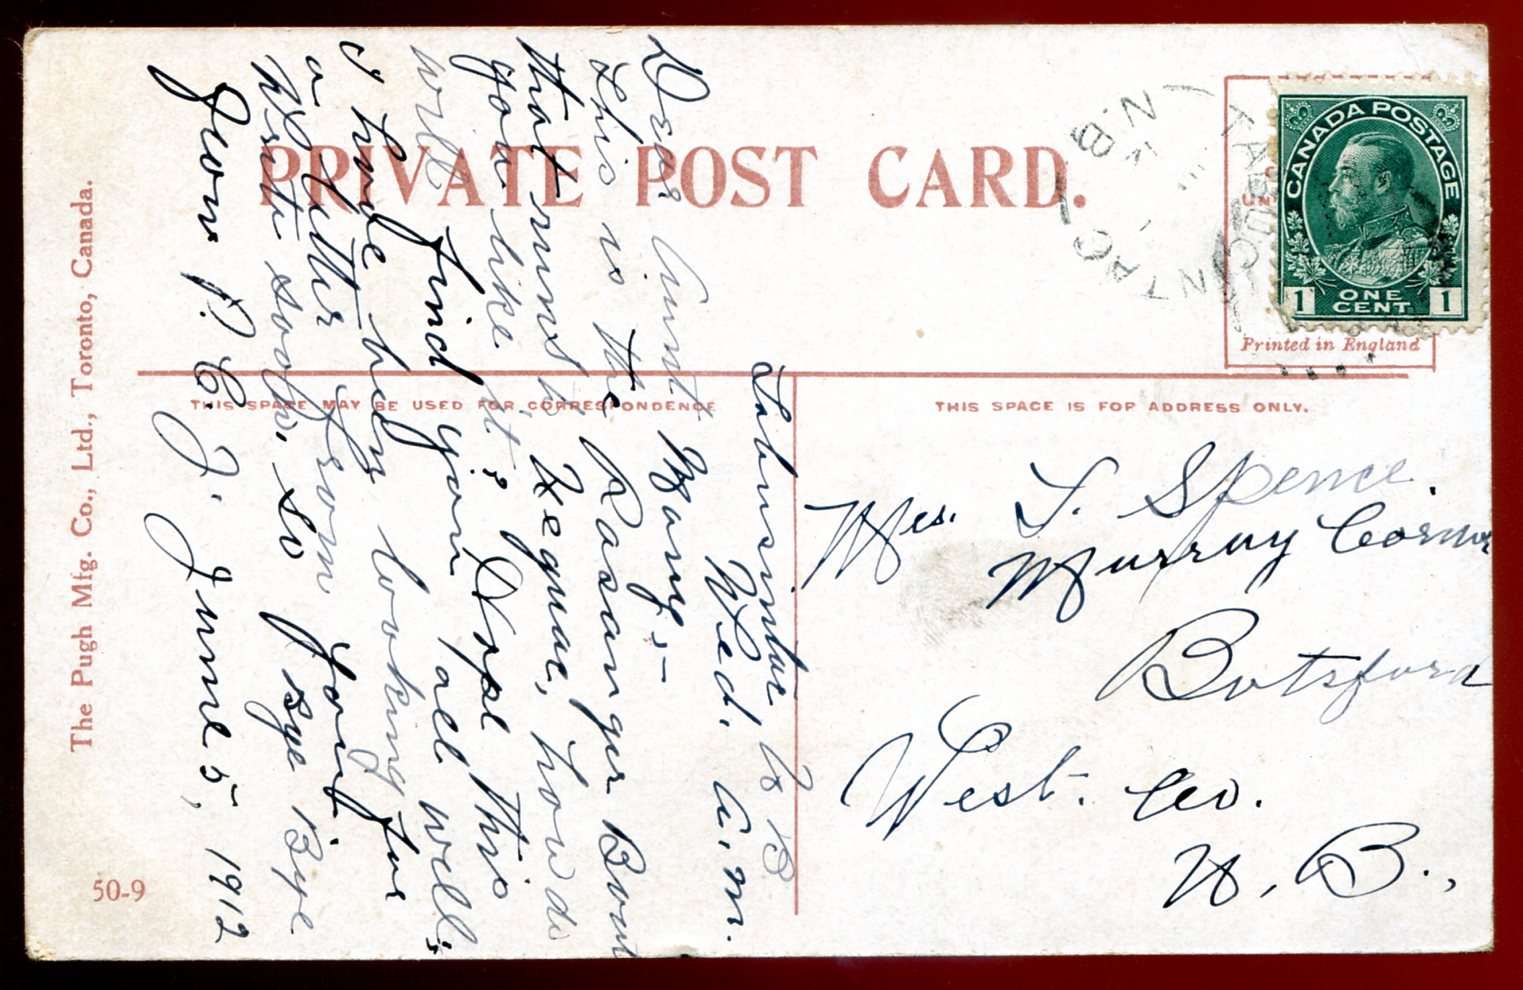 PRIVATE POST CARD.
CANADA POSTAGE
1 ONE CENT 1
Printed in England
TABUCINTAC
N.B
THIS SPACE MAY BE USED FOR CORRESPONDENCE
THIS SPACE IS FOR ADDRESS ONLY.
Wed. a.m.
Dear Aunt Mary;—
This is the Passanger Boat
that runs to, how do
you like it? Hope this
will find you all well;
I have been looking for
a letter from you for
Write soon, so Bye Bye
from P. C. J. June 5, 1912
Mrs. S. Spence.
Murray Corner
Botsford
West. Co.
N. B.,
The Pugh Mfg. Co., Ltd., Toronto, Canada.
50-9